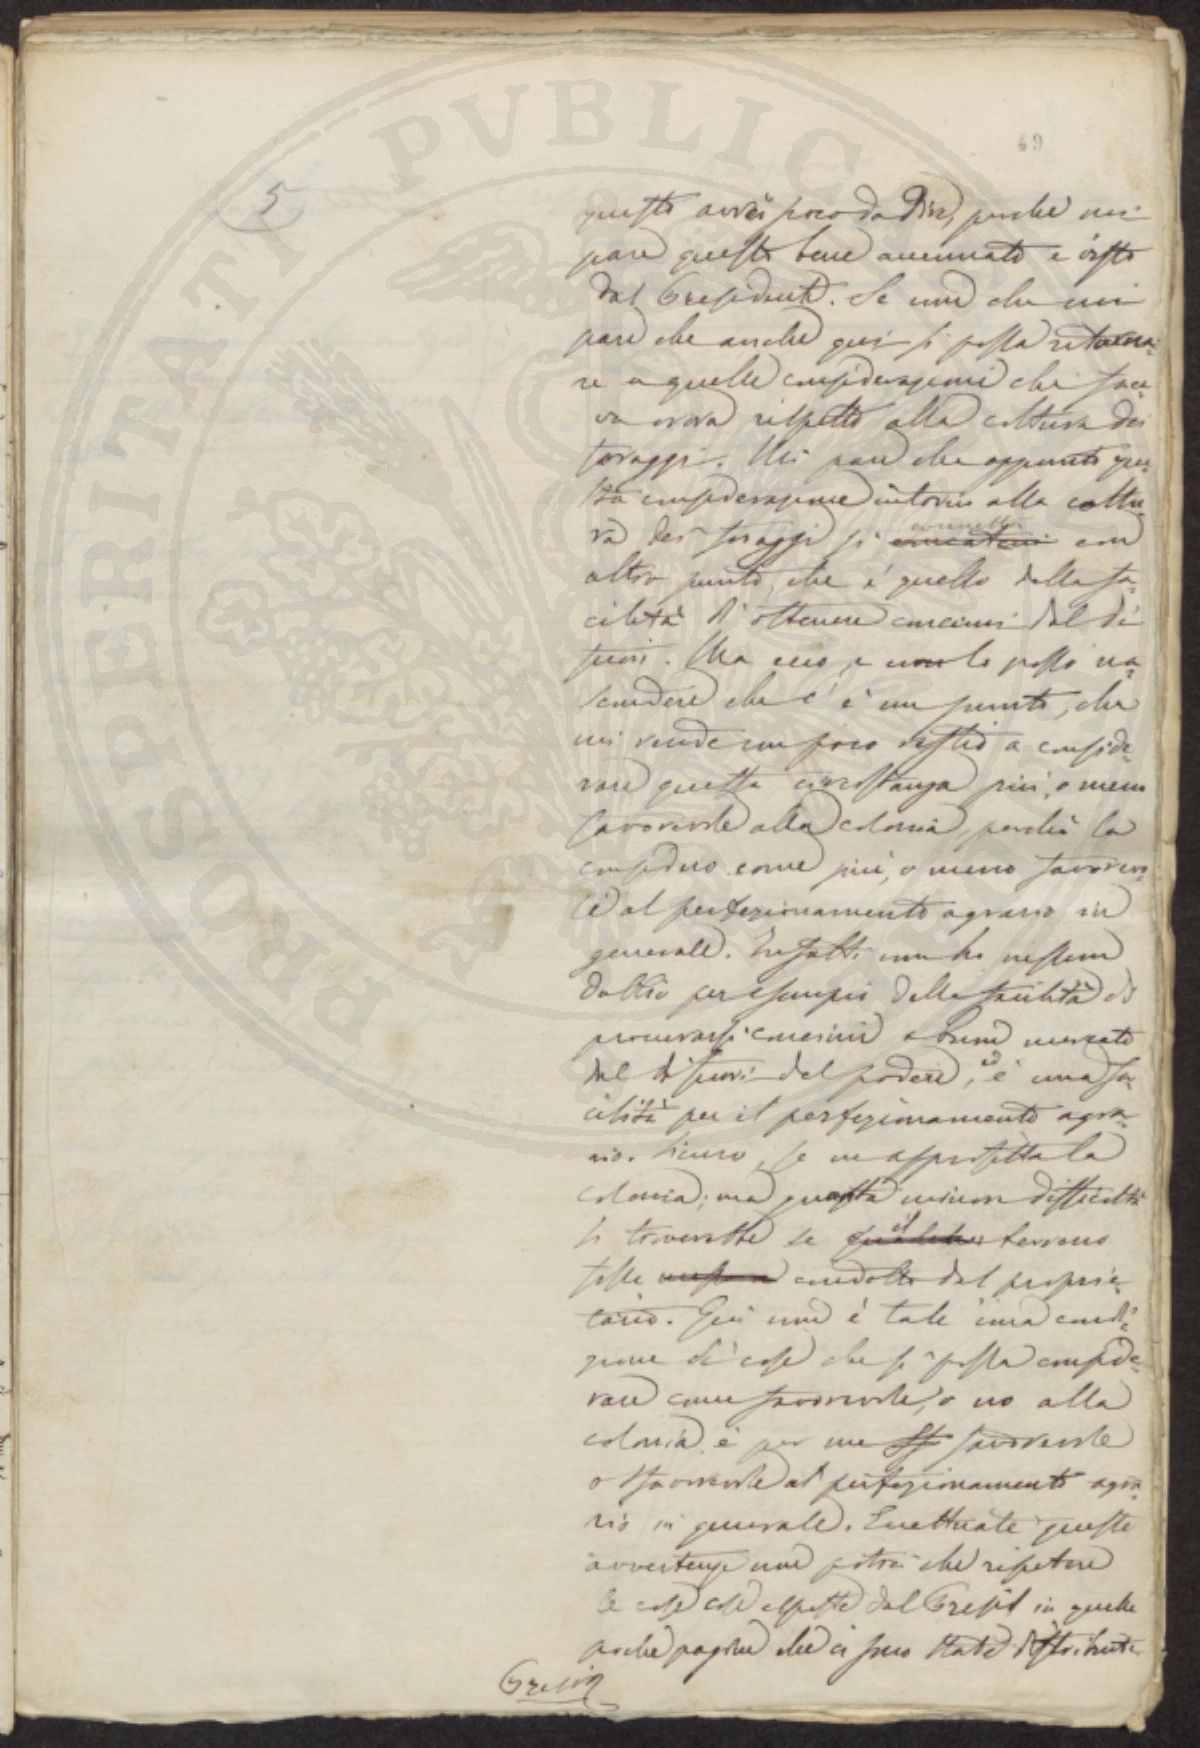 PROSPERITATI PVBLIC
49
5
questo avrei poco da dire, perchè mi
pare questo bene accennato e visto
dal Presidente. Se non che mi
pare che anche qui si possa ritorna-
re a quelle considerazioni che face-
va ora rispetto alla coltura dei
foraggi. Mi pare che appunto que-
sta considerazione intorno alla coltu-
ra dei foraggi si connetta con
altro punto, che è quello della fa-
cilità di ottenere concimi dal di
fuori. Ma ecco, e non lo posso na-
scondere che c'è un punto, che
mi rende un poco restio a conside-
rare questa circostanza più, o meno
favorevole alla colonia, perchè la
considero come più, o meno favorevo-
le al perfezionamento agrario in
generale. Infatti non ho nessun
dubbio per esempio della facilità di
procurarsi concimi a buon mercato
dal di fuori del podere, è una fa-
cilità per il perfezionamento agra-
rio. Sicuro, se ne approfitta la
colonia; ma questa minor difficoltà
si troverebbe se il terreno
fosse condotto dal proprie-
tario. Qui non è tale una condi-
zione di cose che si possa conside-
rare come favorevole, o no alla
colonia, è per me favorevole
o sfavorevole al perfezionamento agra-
rio in generale. Eccettuate queste
avvertenze non potrei che ripetere
le cose esposte dal Presid in quelle
poche pagine che ci sono state distribuite.